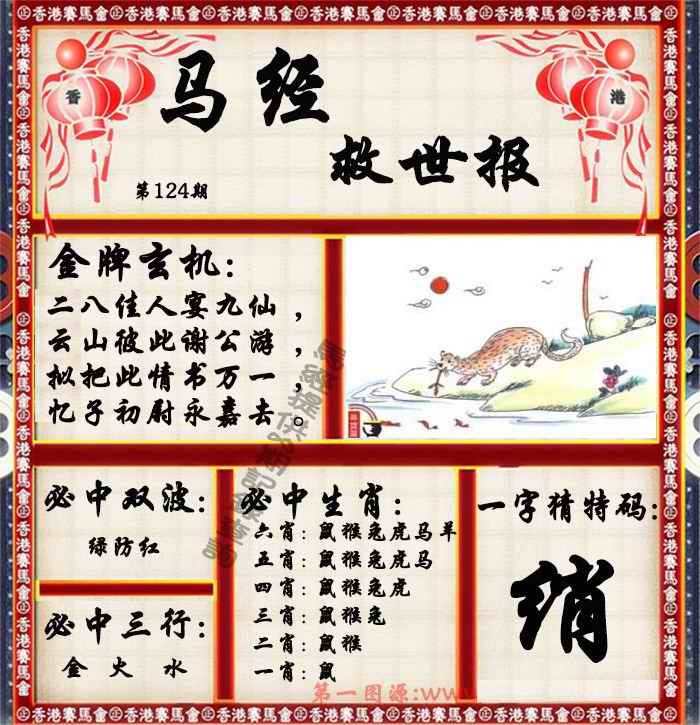 香港賽馬會
香
港
马经
救世报
第124期
金牌玄机:
二八佳人宴九仙，
云山彼此谢公游，
拟把此情书万一，
忆子初尉永嘉去。
必中双波:
绿防红
必中三行:
金 火 水
必中生肖:
六肖:鼠猴兔虎马羊
五肖:鼠猴兔虎马
四肖:鼠猴兔虎
三肖:鼠猴兔
二肖:鼠猴
一肖:鼠
一字猜特码:
绡
第一图源:www